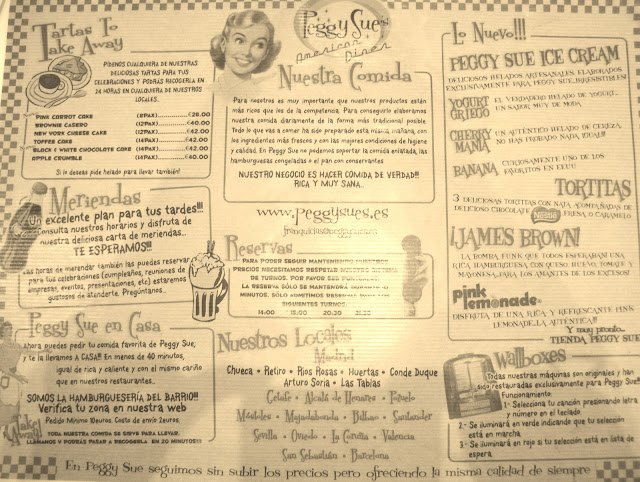 Tartas To
Take Away
PÍDENOS CUALQUIERA DE NUESTRAS
DELICIOSAS TARTAS PARA TUS
CELEBRACIONES Y PODRÁS RECOGERLA EN
24 HORAS EN CUALQUIERA DE NUESTROS
LOCALES.
PINK CARROT CAKE (8PAX)..........€28.00
BROWNIE CASERO (12PAX)..........€40.00
NEW YORK CHEESE CAKE (12PAX)..........€40.00
TOFFEE CAKE (14PAX)..........€40.00
BLACK & WHITE CHOCOLATE CAKE (14PAX)..........€40.00
APPLE CRUMBLE (14PAX)..........€40.00
Si lo deseas pide helado para llevar también!
Meriendas
Un excelente plan para tus tardes!!!
Consulta nuestros horarios y disfruta de
nuestra deliciosa carta de meriendas..
TE ESPERAMOS!!!
Las horas de merendar también las puedes reservar
para tus celebraciones (cumpleaños, reuniones de
empresas, eventos, presentaciones, etc) estaremos
gustosos de atenderte. Pregúntanos..
Peggy Sue en Casa
Ahora puedes pedir tu comida favorita de Peggy Sue,
y te la llevamos A CASA!! En menos de 40 minutos,
igual de rica y caliente y con el mismo cariño
que en nuestros restaurantes..
SOMOS LA HAMBURGUESERÍA DEL BARRIO!!!
Verifica tu zona en nuestra web
Pedido Mínimo 10euros. Costo de envío 2euros.
Take Away!
TODA NUESTRA COMIDA SE SIRVE PARA LLEVAR.
LLÁMANOS Y PODRÁS PASAR A RECOGERLA EN 20 MINUTOS!!
Peggy Sue's
American Diner
Nuestra Comida
Para nosotros es muy importante que nuestros productos estén
más ricos que los de la competencia. Para conseguirlo elaboramos
nuestra comida diariamente de la forma más tradicional posible.
Todo lo que vas a comer ha sido preparado esta misma mañana, con
los ingredientes más frescos y con las mejores condiciones de higiene
y calidad. En Peggy Sue no podemos soportar la comida enlatada, las
hamburguesas congeladas o el pan con conservantes
NUESTRO NEGOCIO ES HACER COMIDA DE VERDAD!!
RICA Y MUY SANA..
www.Peggysues.es
Reservas
PARA PODER SEGUIR MANTENIENDO NUESTROS
PRECIOS NECESITAMOS RESPETAR NUESTRO SISTEMA
DE TURNOS. POR FAVOR SED PUNTUALES.
LA RESERVA SÓLO SE MANTENDRÁ DURANTE
MINUTOS. SÓLO ADMITIMOS RESERVAS PARA LOS
SIGUIENTES TURNOS.
14:00 · 15:00 20:30 21:30
Nuestros Locales
Madrid
Chueca • Retiro • Rios Rosas • Huertas • Conde Duque
Arturo Soria • Las Tablas
Getafe • Alcalá de Henares • Pozuelo
Móstoles • Majadahonda • Bilbao • Santander
Sevilla • Oviedo • La Coruña • Valencia
San Sebastián • Barcelona
Lo Nuevo!!!
PEGGY SUE ICE CREAM
DELICIOSOS HELADOS ARTESANALES, ELABORADOS
EXCLUSIVAMENTE PARA PEGGY SUE..IRRESISTIBLES!
YOGURT GRIEGO
EL VERDADERO HELADO DE YOGURT..
UN SABOR MUY DE MODA.
CHERRY MANIA
UN AUTÉNTICO HELADO DE CEREZA.
NO HAS PROBADO NADA IGUAL!!
BANANA
CURIOSAMENTE UNO DE LOS
FAVORITOS EN EEUU
TORTITAS
3 DELICIOSAS TORTITAS CON NATA ACOMPAÑADAS DE
DELICIOSO CHOCOLATE Nestlé FRESA O CARAMELO
¡JAMES BROWN!
LA BOMBA FUNK QUE TODOS ESPERABAN UNA
RICA HAMBURGUESA CON QUESO, HUEVO, TOMATE Y
MAYONESA..PARA LOS AMANTES DE LOS EXCESOS!
pink lemonade
DISFRUTA DE UNA RICA Y REFRESCANTE PINK
LEMONADE..LA AUTÉNTICA!!!
Y muy pronto..
TIENDA PEGGY SUE
Wallboxes
Todas nuestras máquinas son originales y han
sido restauradas exclusivamente para Peggy Sue
Funcionamiento:
1- Selecciona tu canción presionando letra
y número en el teclado
2- Se iluminará en verde indicando que tu selección
está en marcha
3- Se iluminará en rojo si tu selección está en lista de
espera
En Peggy Sue seguimos sin subir los precios pero ofreciendo la misma calidad de siempre